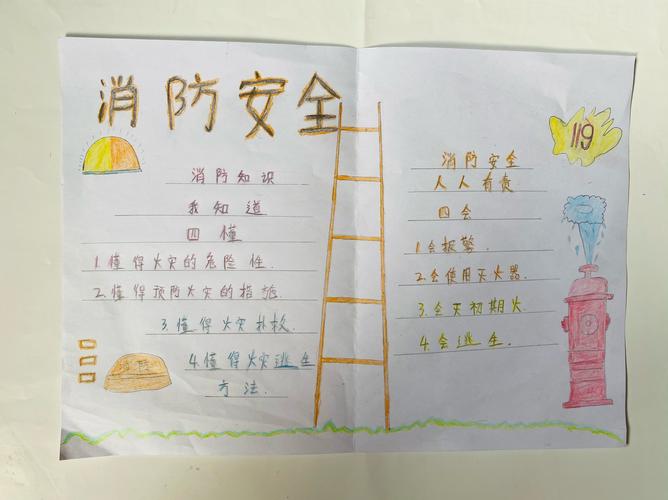 消防安全
消防知识
我知道
四懂
1.懂得火灾的危险性.
2.懂得预防火灾的措施.
3.懂得火灾扑救.
4.懂得火灾逃生
方法.
消防
119
消防安全
人人有责
四会
1.会报警.
2.会使用灭火器.
3.会灭初期火.
4.会逃生.